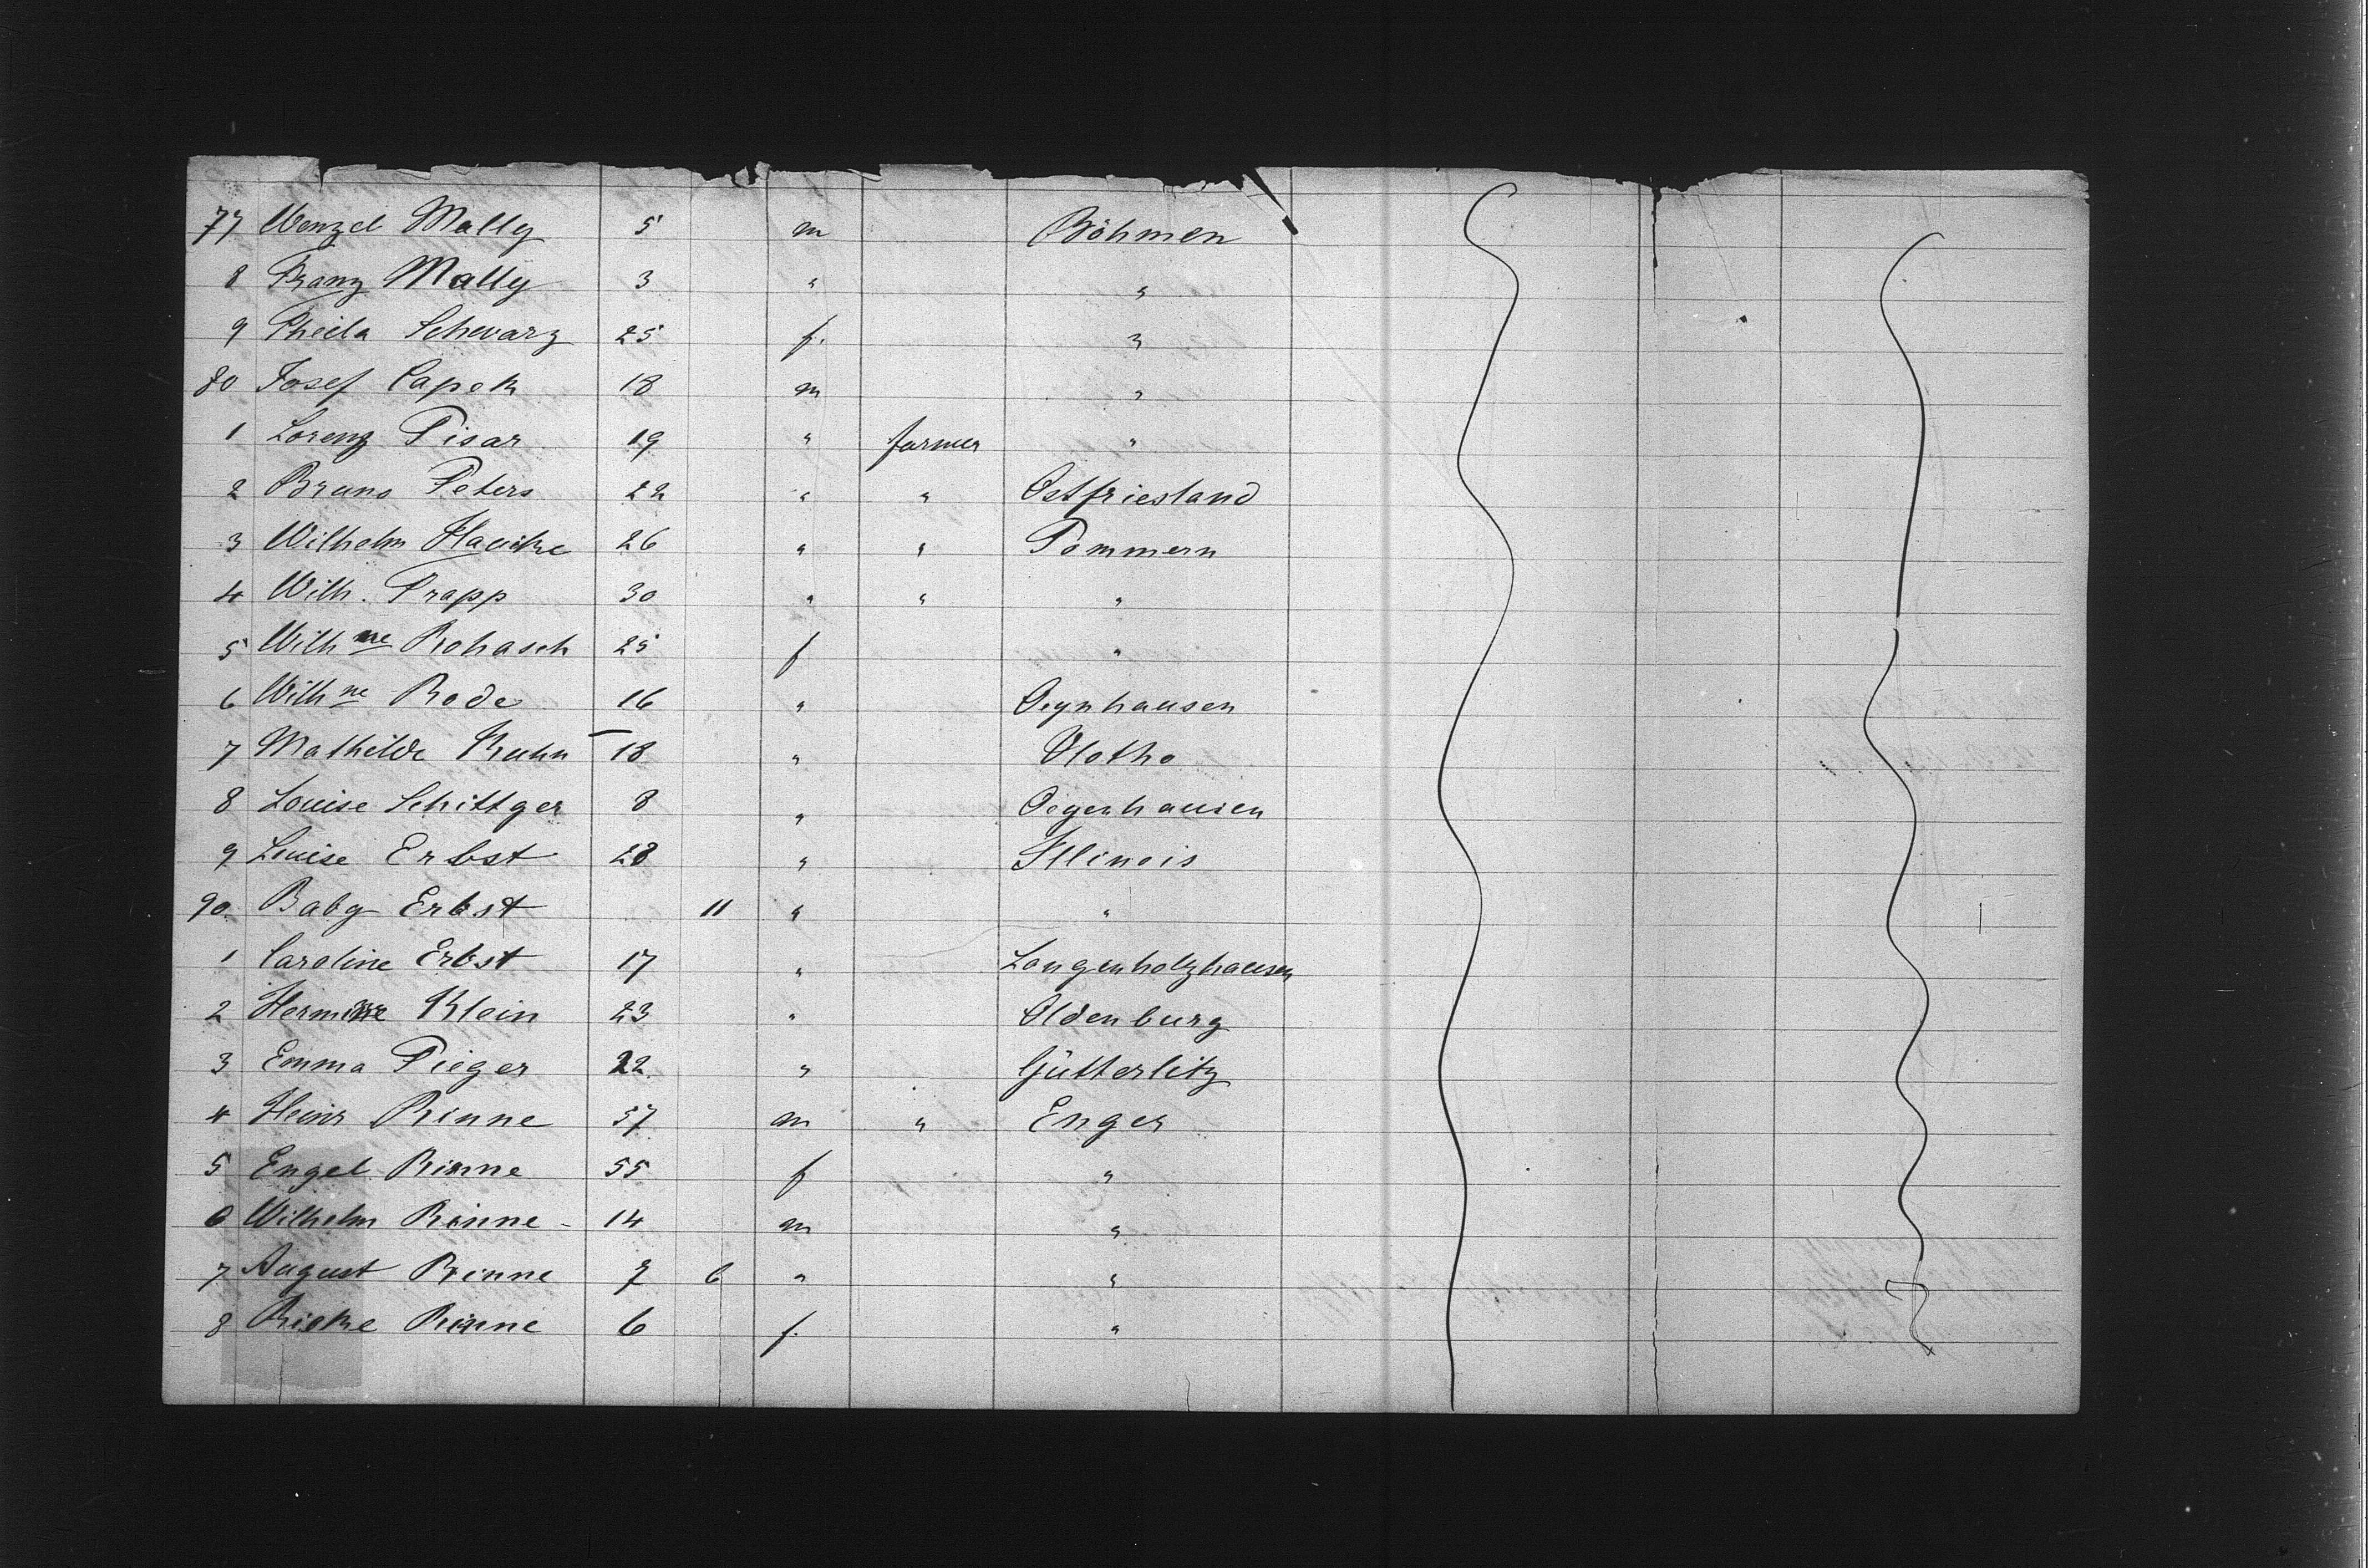 77 Wenzel Mally 5 m Böhmen
8 Franz Mally 3 " "
9 Schwarz 25 f. "
80 Josef Capek 18 m "
1 Lorenz Pisar 19 " farmer "
2 Bruno Peters 22 " " Ostfriesland
3 Wilhelm 26 " " Pommern
4 Wilh. Trapp 30 " " "
5 Wilhne Rohasch 25 f "
6 Wilhne Rode 16 " Oeynhausen
7 Mathilde Kuhn 18 " Vlotho
8 Louise Schittger 8 " Oeyenhausen
9 Louise Erbst 28 " Illinois
90 Baby Erbst 11 " "
1 Caroline Erbst 17 " Langenholzhausen
2 Hermine Klein 23 " Oldenburg
3 Emma Pieger 22 " Gütterlitz
4 Heinr Rinne 57 m " Enger
5 Engel Rinne 55 f "
6 Wilhelm Rinne 14 m "
7 August Rinne 9 6 " "
8 Rieke Rinne 6 f. "